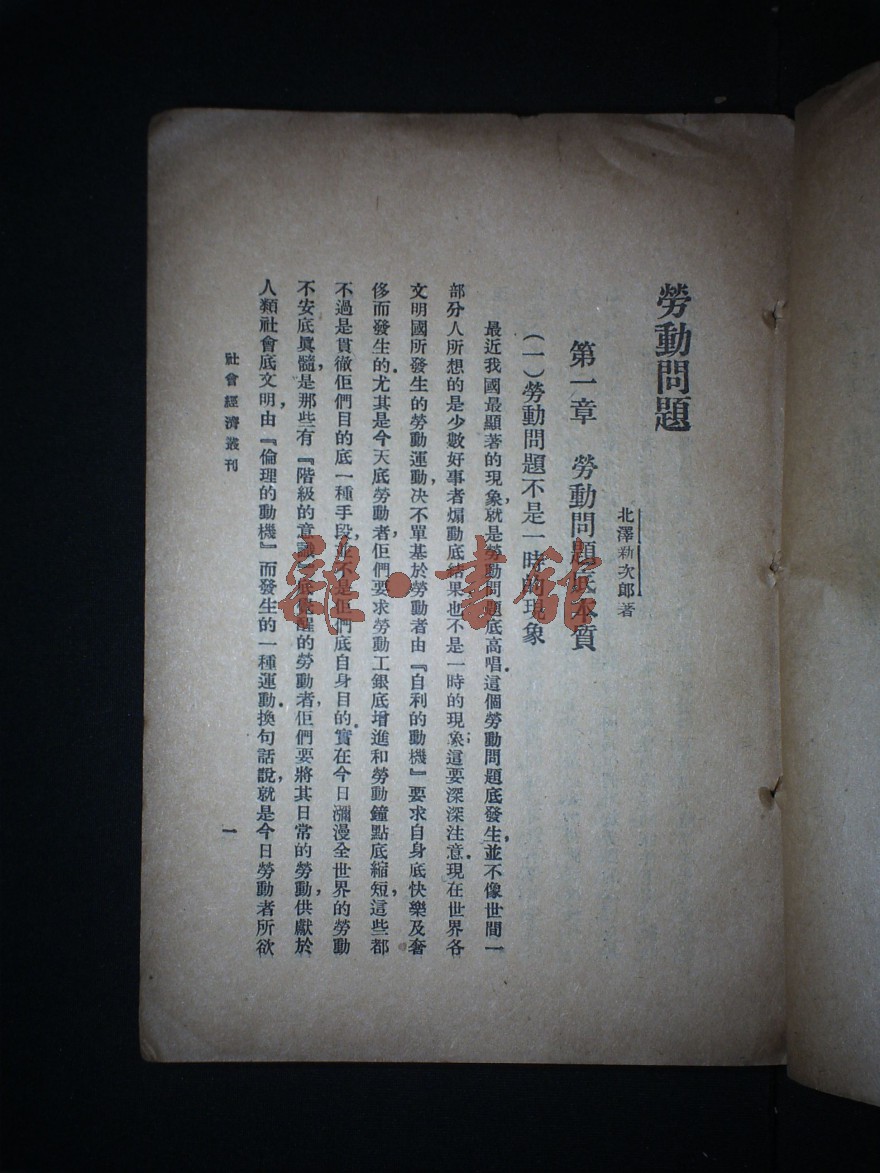 勞動問題
北澤新次郎著
第一章　勞動問題底本質
(一)勞動問題不是一時的現象
最近我國最顯著的現象,就是勞動問題底高唱.這個勞動問題底發生,並不像世間一
部分人所想的是少數好事者煽動底結果也不是一時的現象;這要深深注意.現在世界各
文明國所發生的勞動運動,决不單基於勞動者由『自利的動機』要求自身底快樂及奢
侈而發生的.尤其是今天底勞動者,佢們要求勞動工銀底增進和勞動鐘點底縮短,這些都
不過是貫徹佢們目的底一種手段,並不是佢們底自身目的.實在今日瀰漫全世界的勞動
不安底眞髓,是那些有『階級的意識』底覺醒的勞動者,佢們要將其日常的勞動,供獻於
人類社會底文明,由『倫理的動機』而發生的一種運動.換句話說,就是今日勞動者所欲
社會經濟叢刊
一
雜·書館